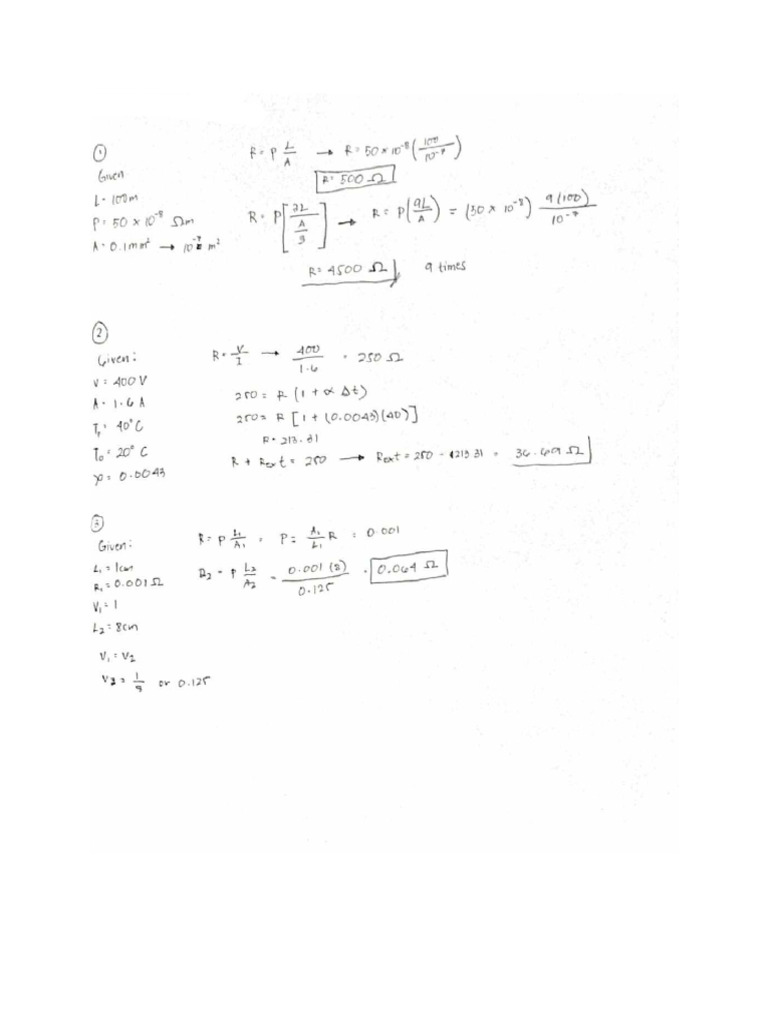 ①
Given
L = 100m
ρ = 50 × 10⁻⁸ Ωm
A = 0.1mm² → 10⁻⁷ m²
R = ρ L/A → R = 50 × 10⁻⁸ (100/10⁻⁷)
R = 500 Ω
R = ρ [3L/(A/3)] → R = ρ(9L/A) = (50 × 10⁻⁸) 9(100)/10⁻⁷
R = 4500 Ω 9 times
②
Given:
V = 400 V
A = 1.6 A
T₁ = 40°C
T₀ = 20° C
= 0.0043
R = V/I → 400/1.6 = 250 Ω
250 = R (1 + α Δt)
250 = R [1 + (0.0043)(40)]
R = 213.31
R + Rext = 250 → Rext = 250 - 213.31 = 36.69 Ω
③
Given:
L₁ = 1cm
R₁ = 0.001 Ω
V₁ = 1
L₂ = 8cm
V₁ = V₂
= 1/8 or 0.125
R = ρ L₁/A₁ = ρ = A₁/L₁ R = 0.001
R₂ = ρ L₂/A₂ = 0.001 (8)/0.125 = 0.064 Ω